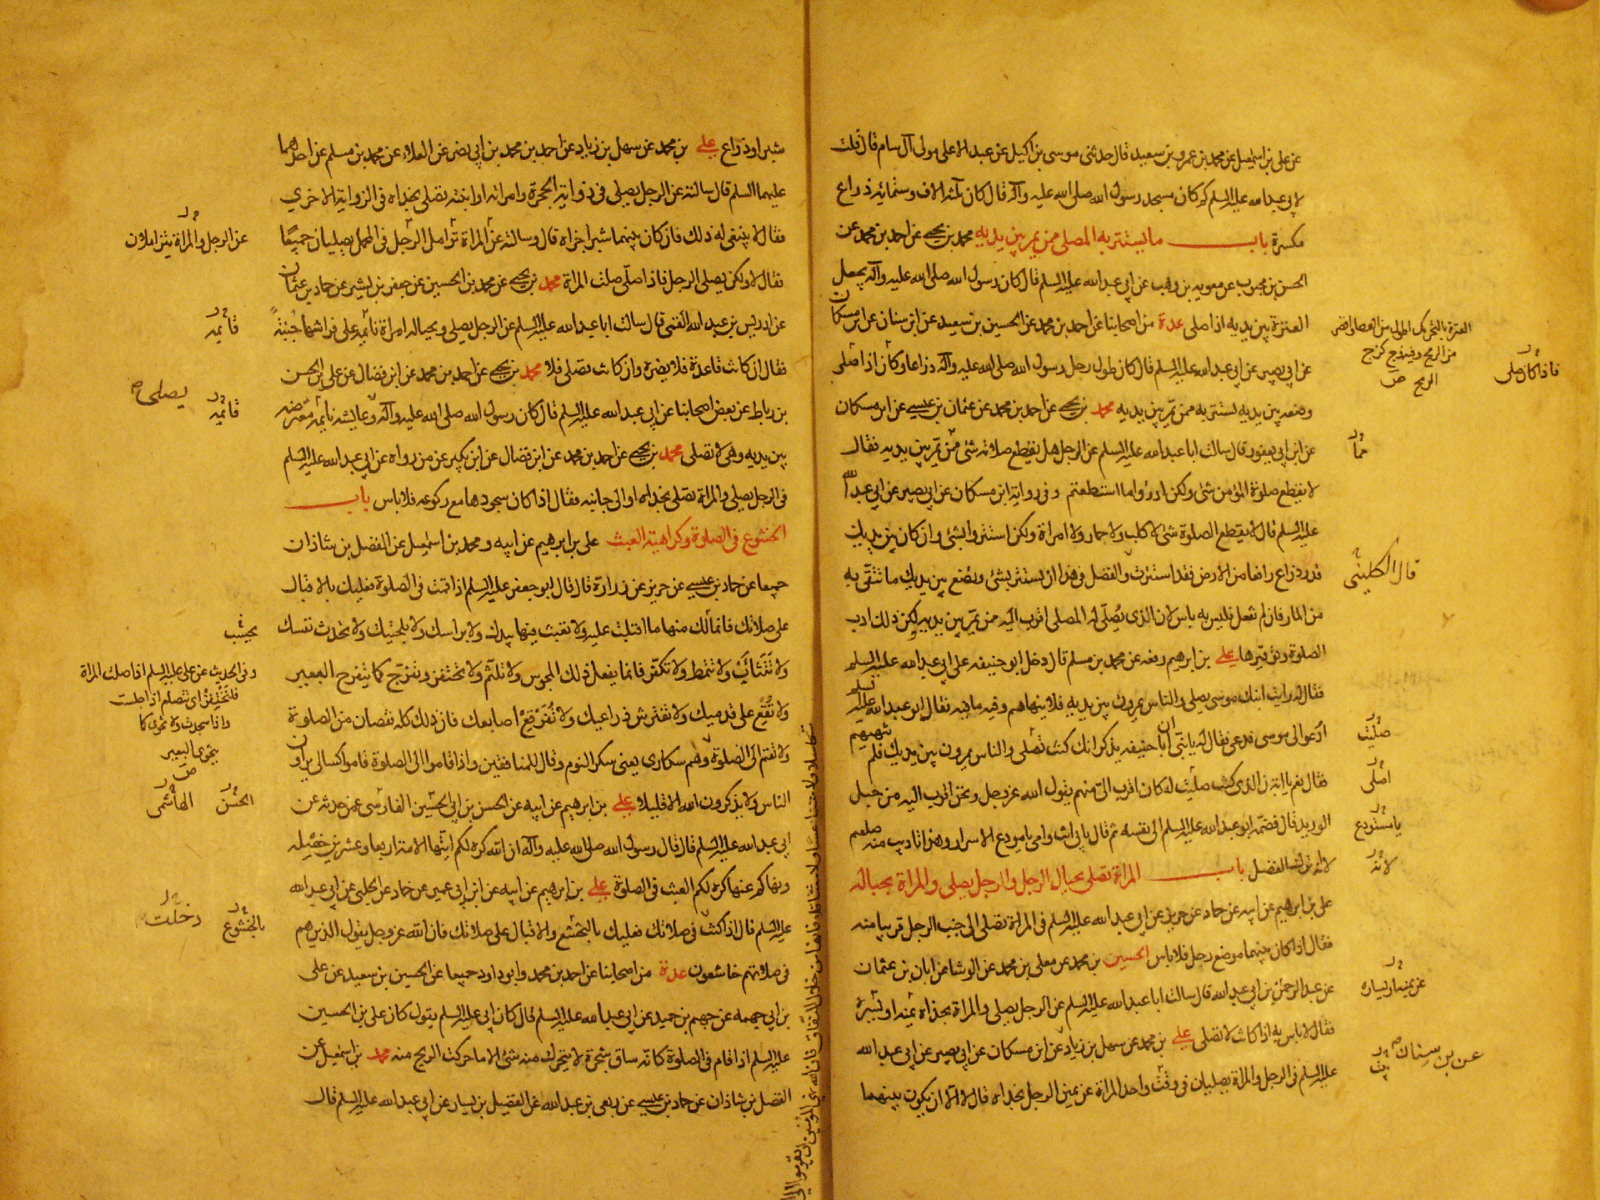 عن علي بن اسمعيل عن محمد بن عمرو بن سعيد قال حدثني موسى بن اكيل عن عبد الاعلى مولى آل سام قال قلت
لابي عبد الله عليه السلم كم كان مسجد رسول الله صلى الله عليه وآله قال كان ثلثة آلاف وستمائة ذراع
مكسرة باب ما يستتر به المصلي ممن يمر بين يديه محمد بن يحيى عن احمد بن محمد عن
الحسن بن محبوب عن معوية بن وهب عن ابي عبد الله عليه السلم قال كان رسول الله صلى الله عليه وآله يجعل
العنزة بين يديه اذا صلى عدة من اصحابنا عن احمد بن محمد عن الحسين بن سعيد عن ابن سنان عن ابن مسكان
عن ابي بصير عن ابي عبد الله عليه السلم قال كان طول رحل رسول الله صلى الله عليه وآله ذراعا وكان اذا صلى
وضعه بين يديه يستتر به ممن يمر بين يديه محمد بن يحيى عن احمد بن محمد عن عثمان بن عيسى عن ابن مسكان
عن ابن ابي يعفور قال سالت ابا عبد الله عليه السلم عن الرجل هل يقطع صلاته شئ ممن يمر بين يديه فقال
لا يقطع صلوة المؤمن شئ ولكن ادرؤا ما استطعتم وفي رواية ابن مسكان عن ابي بصير عن ابي عبد الله
عليه السلم قال لا يقطع الصلوة شئ لا كلب ولا حمار ولا امراة ولكن استتروا بشئ وان كان بين يديك
قدر ذراع رافعا من الارض فقد استترت والفضل في هذا ان تستتر بشئ وتضع بين يديك ما تتقي به
من المار فان لم تفعل فليس به باس لان الذي يصلي له المصلي اقرب اليه ممن يمر بين يديه لكن ذلك ادب
الصلوة وتوقيرها علي بن ابراهيم رفعه عن محمد بن مسلم قال دخل ابو حنيفة على ابي عبد الله عليه السلم
فقال له رايت ابنك موسى يصلي والناس يمرون بين يديه فلا ينهاهم وفيه ما فيه فقال ابو عبد الله عليه السلم
ادعوا لي موسى فدعي فقال له يا بني ان ابا حنيفة يذكر انك كنت تصلي والناس يمرون بين يديك فلم تنههم
فقال نعم يا ابة ان الذي كنت صليت له كان اقرب الي منهم يقول الله عز وجل ونحن اقرب اليه من حبل
الوريد قال فضمه ابو عبد الله عليه السلم الى نفسه ثم قال بابي انت وامي يا مودع الاسرار وهذا تاديب منه
لانه ترك الفضل باب المراة تصلي بحيال الرجل والرجل يصلي والمراة بحياله
علي بن ابراهيم عن ابيه عن حماد عن حريز عن ابي عبد الله عليه السلم في المراة تصلي الى جنب الرجل قريبا منه
فقال اذا كان بينهما موضع رحل فلا باس الحسين بن محمد عن معلى بن محمد عن الوشا عن ابان بن عثمان
عن عبد الرحمن بن ابي عبد الله قال سالت ابا عبد الله عليه السلم عن الرجل يصلي والمراة بحذاه يمنة او يسرة
فقال لا باس به اذا كانت لا تصلي علي بن محمد عن سهل بن زياد عن ابن مسكان عن ابي بصير عن ابي عبد الله
عليه السلم في الرجل والمراة يصليان في وقت واحد المراة عن يمين الرجل بحذاه قال لا الا ان يكون بينهما
فاذا كان صلى
قال الكليني
صليت
اصلي
يا مستودع
لانه
عن يمينه او يساره
عن بن سنان
شبر او ذراع علي بن محمد عن سهل بن زياد عن احمد بن محمد بن ابي نصر عن العلاء عن محمد بن مسلم عن احدهما
عليهما السلم قال سالته عن الرجل يصلي في زواية الحجرة وامراته او ابنته تصلي بحذاه في الزواية الاخرى
فقال لا ينبغي له ذلك فان كان بينهما شبر اجزاه قال وسالته عن المراة تزامل الرجل في المحمل يصليان جميعا
فقال لا ولكن يصلي الرجل فاذا صلى صلت المراة محمد بن يحيى عن محمد بن الحسين عن جعفر بن بشير عن حماد بن عثمان
عن ادريس بن عبد الله القمي قال سالت ابا عبد الله عليه السلم عن الرجل يصلي وبحياله امراة نائمة على فراشها جنبة
فقال ان كانت قاعدة فلا يضره وان كانت تصلي فلا محمد بن يحيى عن احمد بن محمد عن ابن فضال عن علي بن الحسن
بن رباط عن بعض اصحابنا عن ابي عبد الله عليه السلم قال كان رسول الله صلى الله عليه وآله وعايشة نائمة معترضة
بين يديه وهي لا تصلي محمد بن يحيى عن احمد بن محمد عن ابن فضال عن ابن بكير عن من رواه عن ابي عبد الله عليه السلم
في الرجل يصلي والمراة تصلي بحذاه او الى جانبه فقال اذا كان سجودها مع ركوعه فلا باس باب
الخشوع في الصلوة وكراهية العبث علي بن ابراهيم عن ابيه ومحمد بن اسمعيل عن الفضل بن شاذان
جميعا عن حماد بن عيسى عن حريز عن زرارة قال قال ابو جعفر عليه السلم اذا قمت في الصلوة فعليك بالاقبال
على صلاتك فانما لك منها ما اقبلت عليه ولا تعبث فيها بيدك ولا براسك ولا بلحيتك ولا تحدث نفسك
ولا تتثائب ولا تتمط ولا تكفر فانما يفعل ذلك المجوس ولا تلثم ولا تحتفز وتفرج كما يتفرج البعير
ولا تقع على قدميك ولا تفترش ذراعيك ولا تفرقع اصابعك فان ذلك كله نقصان من الصلوة
ولا تقم الى الصلوة وهم سكارى يعني سكر النوم وقال للمنافقين واذا قاموا الى الصلوة قاموا كسالى يراؤن
الناس ولا يذكرون الله الا قليلا علي بن ابراهيم عن ابيه عن الحسن بن ابي الحسين الفارسي عمن حدثه عن
ابي عبد الله عليه السلم قال قال رسول الله صلى الله عليه وآله ان الله كره لكم ايتها الامة اربعا وعشرين خصلة
ونهاكم عنها كره لكم العبث في الصلوة علي بن ابراهيم عن ابيه عن ابن ابي عمير عن حماد عن الحلبي عن ابي عبد الله
عليه السلم قال اذا كنت في صلاتك فعليك بالتخشع والاقبال على صلاتك فان الله عز وجل يقول الذين هم
في صلاتهم خاشعون عدة من اصحابنا عن احمد بن محمد وابو داود جميعا عن الحسين بن سعيد عن علي
بن ابي جهمة عن جهم بن حميد عن ابي عبد الله عليه السلم قال كان ابي عليه السلم يقول كان علي بن الحسين
عليه السلم اذا قام في الصلوة كانه ساق شجرة لا يتحرك منه شئ الا ما حركت الريح منه محمد بن اسمعيل عن
الفضل بن شاذان عن حماد بن عيسى عن ربعي بن عبد الله عن الفضيل بن يسار عن ابي عبد الله عليه السلم قال
عن الرجل والمراة يتزاملان
قائمة
يصلي
قائمة
وفي الحديث عن علي عليه السلم اذا صلت المراة
الحسن الهاشمي
بالخشوع دخلت